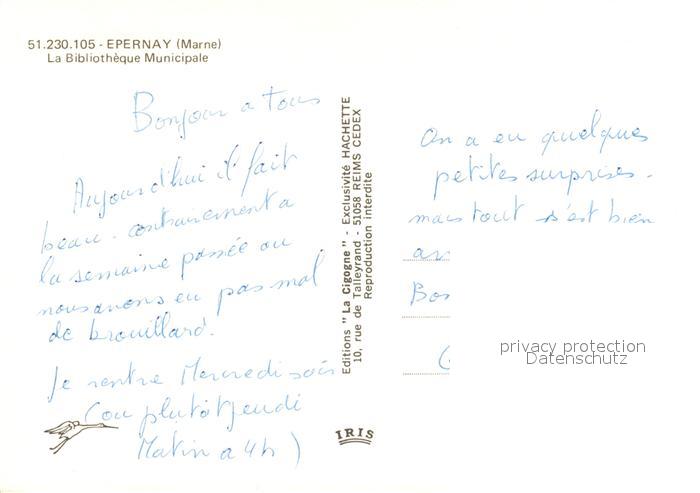 51.230.105 - EPERNAY (Marne)
La Bibliothèque Municipale
Bonjour a tous
Aujourd'hui il fait
beau. contrairement a
la semaine passée ou
nous avons eu pas mal
de brouillard.
Je rentre Mercredi soir
(ou plutôt Jeudi
Matin a 4h)
Editions "La Cigogne" - Exclusivité HACHETTE
10, rue de Talleyrand - 51058 REIMS CEDEX
Reproduction interdite
IRIS
On a eu quelques
petites surprises.
mais tout s'est bien
privacy protection
Datenschutz